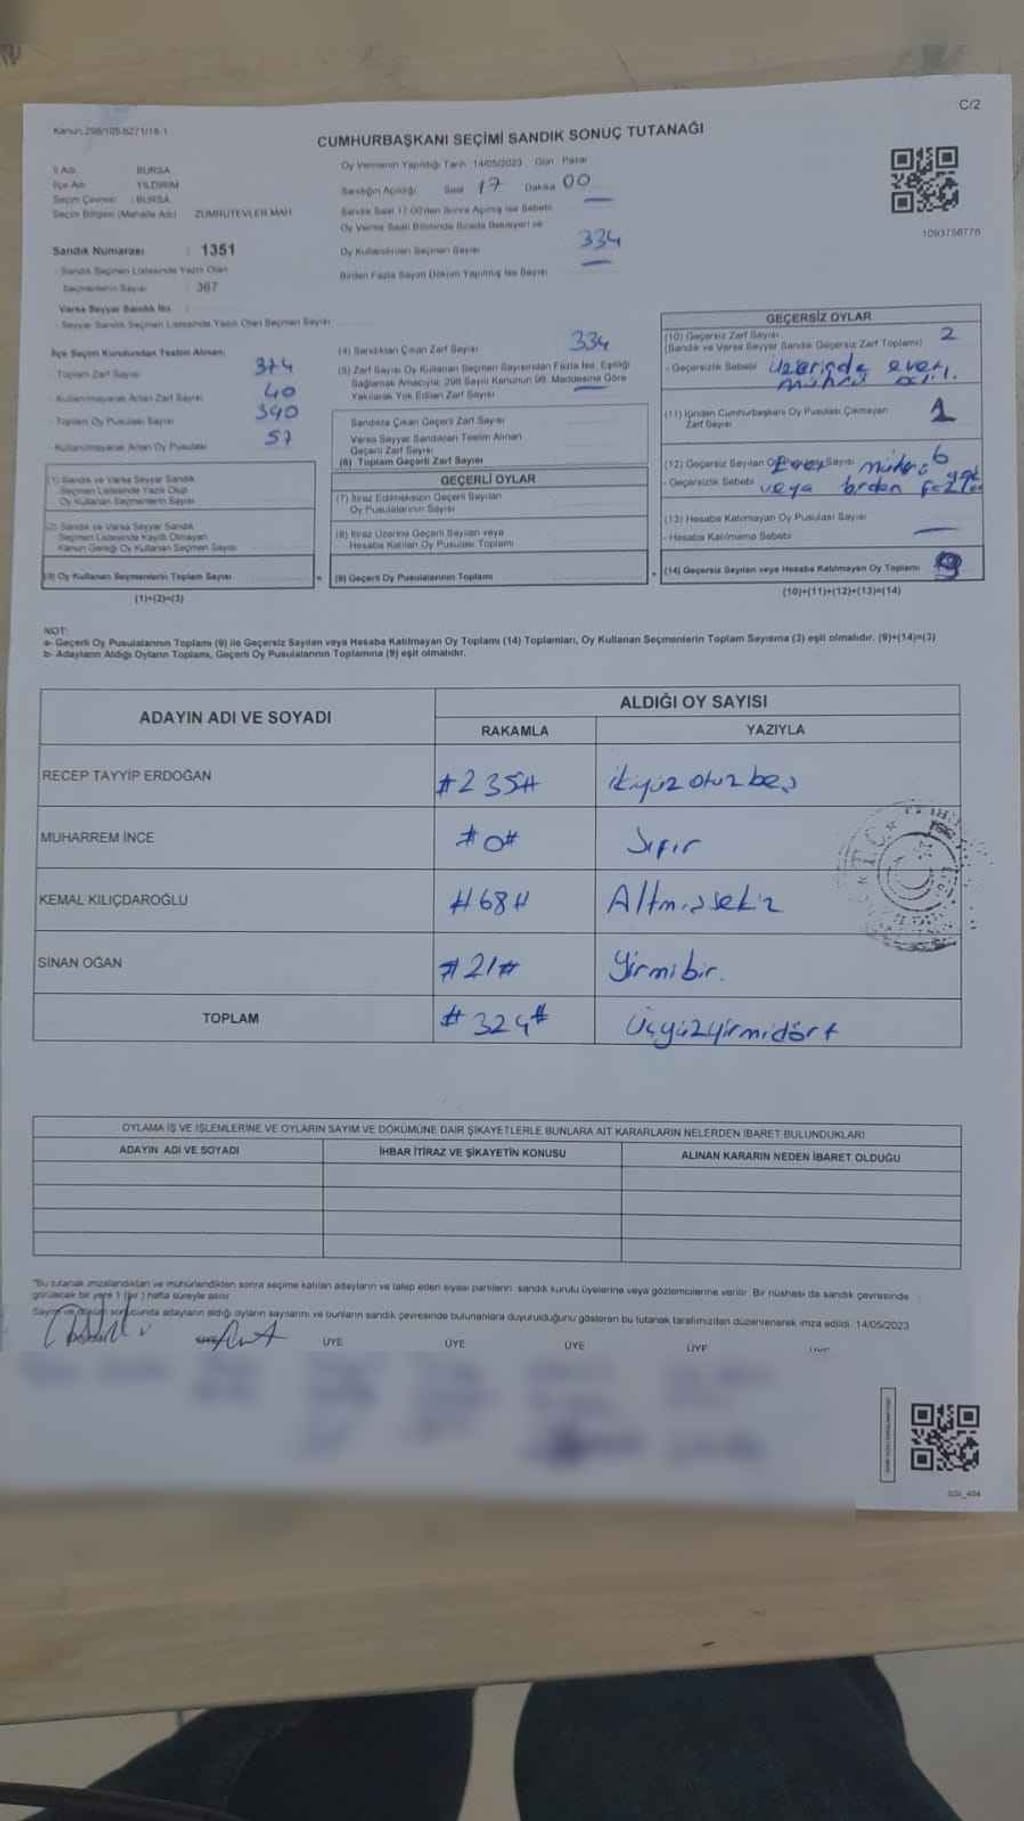 C/2
Kanun:298/105-6271/18-1
CUMHURBAŞKANI SEÇİMİ SANDIK SONUÇ TUTANAĞI
İl Adı : BURSA
İlçe Adı : YILDIRIM
Seçim Çevresi : BURSA
Seçim Bölgesi (Mahalle Adı) : ZÜMRÜTEVLER MAH.
Oy Vermenin Yapıldığı Tarih : 14/05/2023 Gün : Pazar
Sandığın Açıldığı Saat 17 Dakika 00
Sandık Saat 17:00'den Sonra Açılmış İse Sebebi
Oy Verme Saati Bitiminde Sırada Bekleyen ve
Oy Kullandırılan Seçmen Sayısı 334
Birden Fazla Sayım Döküm Yapılmış İse Sayısı
1093758778
Sandık Numarası : 1351
Sandık Seçmen Listesinde Yazılı Olan
Seçmenlerin Sayısı : 367
Varsa Seyyar Sandık No
- Seyyar Sandık Seçmen Listesinde Yazılı Olan Seçmen Sayısı
İlçe Seçim Kurulundan Teslim Alınan;
- Toplam Zarf Sayısı 374
- Kullanılmayarak Artan Zarf Sayısı 40
- Toplam Oy Pusulası Sayısı 390
- Kullanılmayarak Artan Oy Pusulası 57
(1) Sandık ve Varsa Seyyar Sandık
Seçmen Listesinde Yazılı Olup
Oy Kullanan Seçmenlerin Sayısı
(2) Sandık ve Varsa Seyyar Sandık
Seçmen Listesinde Kayıtlı Olmayan
Kanun Gereği Oy Kullanan Seçmen Sayısı
(3) Oy Kullanan Seçmenlerin Toplam Sayısı
(1)+(2)=(3)
(4) Sandıktan Çıkan Zarf Sayısı 334
(5) Zarf Sayısı Oy Kullanan Seçmen Sayısından Fazla İse, Eşitliği
Sağlamak Amacıyla, 298 Sayılı Kanunun 98. Maddesine Göre
Yakılarak Yok Edilen Zarf Sayısı
Sandıkta Çıkan Geçerli Zarf Sayısı
Varsa Seyyar Sandıktan Teslim Alınan
Geçerli Zarf Sayısı
(6) Toplam Geçerli Zarf Sayısı
GEÇERLİ OYLAR
(7) İtiraz Edilmeksizin Geçerli Sayılan
Oy Pusulalarının Sayısı
(8) İtiraz Üzerine Geçerli Sayılan veya
Hesaba Katılan Oy Pusulası Toplamı
(9) Geçerli Oy Pusulalarının Toplamı
GEÇERSİZ OYLAR
(10) Geçersiz Zarf Sayısı 2
(Sandık ve Varsa Seyyar Sandık Geçersiz Zarf Toplamı)
- Geçersizlik Sebebi üzerinde evet
(11) İçinden Cumhurbaşkanı Oy Pusulası Çıkmayan 1
Zarf Sayısı
(12) Geçersiz Sayılan Oy Pusulası Sayısı 6
- Geçersizlik Sebebi Evet mührü yok
veya birden fazla
(13) Hesaba Katılmayan Oy Pusulası Sayısı
- Hesaba Katılmama Sebebi
(14) Geçersiz Sayılan veya Hesaba Katılmayan Oy Toplamı 9
(10)+(11)+(12)+(13)=(14)
NOT:
a- Geçerli Oy Pusulalarının Toplamı (9) ile Geçersiz Sayılan veya Hesaba Katılmayan Oy Toplamı (14) Toplamları, Oy Kullanan Seçmenlerin Toplam Sayısına (3) eşit olmalıdır. (9)+(14)=(3)
b- Adayların Aldığı Oyların Toplamı, Geçerli Oy Pusulalarının Toplamına (9) eşit olmalıdır.
ADAYIN ADI VE SOYADI
ALDIĞI OY SAYISI
RAKAMLA YAZIYLA
RECEP TAYYİP ERDOĞAN #235# ikiyüzotuzbeş
MUHARREM İNCE #0# Sıfır
KEMAL KILIÇDAROĞLU #68# Altmışsekiz
SİNAN OĞAN #21# Yirmibir.
TOPLAM #324# Üçyüzyirmidört
T.C.
OYLAMA İŞ VE İŞLEMLERİNE VE OYLARIN SAYIM VE DÖKÜMÜNE DAİR ŞİKAYETLERLE BUNLARA AİT KARARLARIN NELERDEN İBARET BULUNDUKLARI
ADAYIN ADI VE SOYADI İHBAR İTİRAZ VE ŞİKAYETİN KONUSU ALINAN KARARIN NEDEN İBARET OLDUĞU
"Bu tutanak imzalandıktan ve mühürlendikten sonra seçime katılan adayların ve talep eden siyasi partilerin sandık kurulu üyelerine veya gözlemcilerine verilir. Bir nüshası da sandık çevresinde
görülecek bir yere 1 (bir) hafta süreyle asılır.
Sayım ve döküm sonucunda adayların aldığı oyların sayılarını ve bunların sandık çevresinde bulunanlara duyurulduğunu gösteren bu tutanak tarafımızdan düzenlenerek imza edildi. 14/05/2023
ÜYE ÜYE ÜYE ÜYE